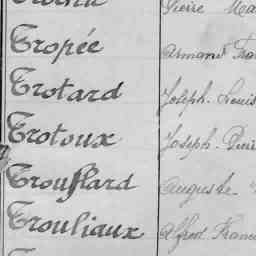 Pierre
Tropée Armand
Trotard Joseph Louis
Trotoux Joseph
Troufflard Auguste
Trouliaux Alfred